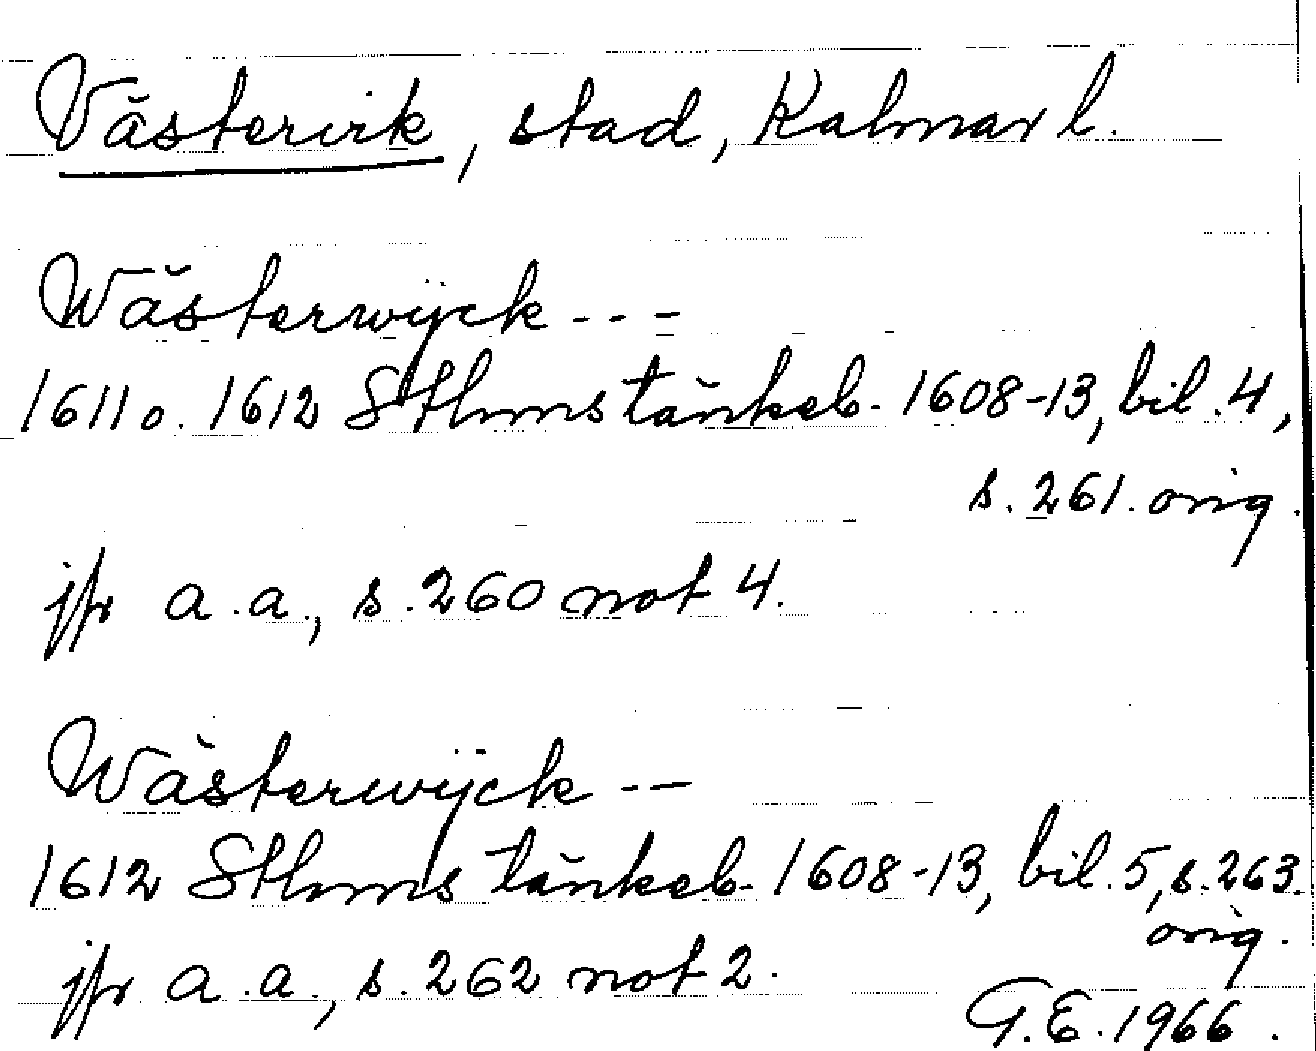 Västervik, stad, Kalmar l.
Wästerwÿck ---
1611 o. 1612 Sthms tänkeb. 1608-13, bil. 4,
s. 261. orig.
jfr a.a., s. 260 not 4.
Wästerwÿck --
1612 Sthms tänkeb. 1608-13, bil. 5, s. 263.
orig.
jfr a.a., s. 262 not 2.
G.E. 1966.